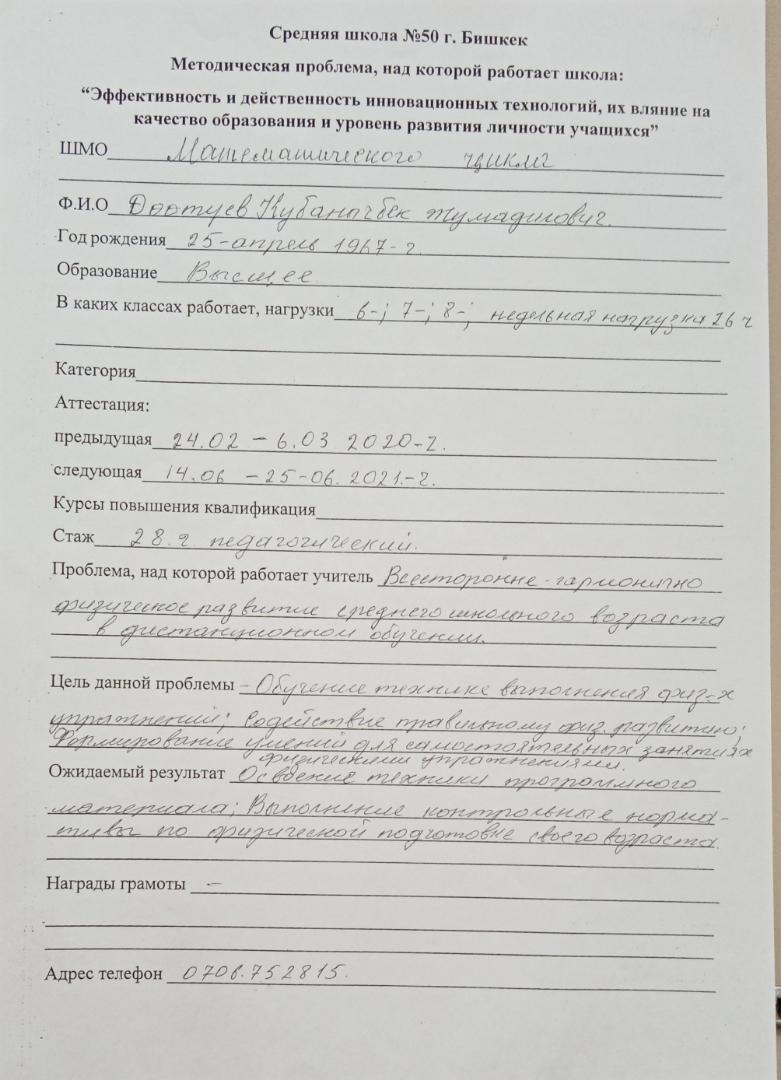 Средняя школа №50 г. Бишкек
Методическая проблема, над которой работает школа:
“Эффективность и действенность инновационных технологий, их вляние на
качество образования и уровень развития личности учащихся”
ШМО Математического цикла
Ф.И.О Доотуев Кубанычбек Жумадилович.
Год рождения 25-апрель 1967-г.
Образование Высшее
В каких классах работает, нагрузки 6-; 7-; 8-; недельная нагрузка 26 ч
Категория
Аттестация:
предыдущая 24.02 – 6.03 2020-г.
следующая 14.06 – 25-06. 2021.-г.
Курсы повышения квалификация
Стаж 28.г. педагогический.
Проблема, над которой работает учитель Всесторонне-гармонично
физическое развитие среднего школьного возраста
в дистанционном обучении.
Цель данной проблемы - Обучение технике выполнения физ-х
упражнений; Содействие правильному физ. развитию;
Формирование умений для самостоятельных занятиях
физическими упражнениями.
Ожидаемый результат Освоение техники программного
материала; Выполнение контрольные норма-
тивы по физической подготовке своего возраста.
Награды грамоты –
Адрес телефон 0706.752815.